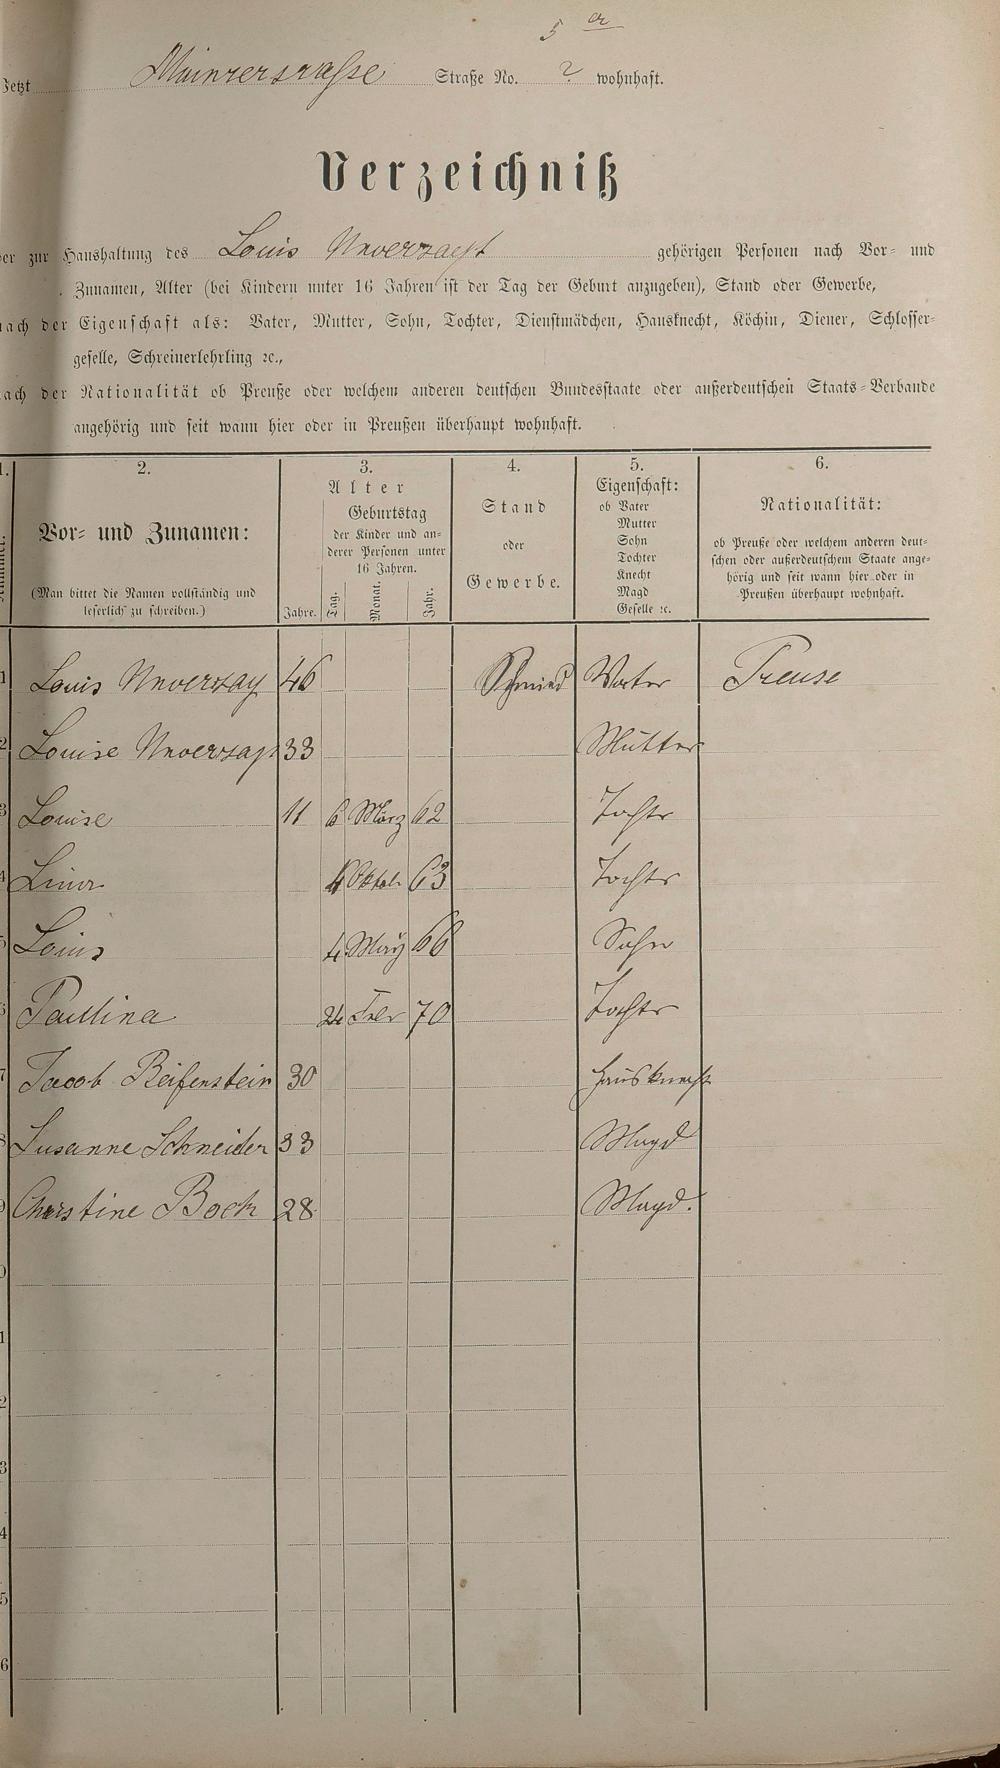 5 a
Jetzt Mainzerstraße Straße No. 2 wohnhaft.
Verzeichniß
der zur Haushaltung des Louis Unverzagt gehörigen Personen nach Vor- und
Zunamen, Alter (bei Kindern unter 16 Jahren ist der Tag der Geburt anzugeben), Stand oder Gewerbe,
nach der Eigenschaft als: Vater, Mutter, Sohn, Tochter, Dienstmädchen, Hausknecht, Köchin, Diener, Schlosser-
geselle, Schreinerlehrling ꝛc.,
nach der Nationalität ob Preuße oder welchem anderen deutschen Bundesstaate oder außerdeutschen Staats-Verbande
angehörig und seit wann hier oder in Preußen überhaupt wohnhaft.
1. 2. 3. 4. 5. 6.
Vor- und Zunamen:
(Man bittet die Namen vollständig und
leserlich zu schreiben.)
Alter
Jahre.
Geburtstag
der Kinder und an-
derer Personen unter
16 Jahren.
Tag. Monat. Jahr.
Stand
oder
Gewerbe.
Eigenschaft:
ob Vater
Mutter
Sohn
Tochter
Knecht
Magd
Geselle ꝛc.
Nationalität:
ob Preuße oder welchem anderen deut-
schen oder außerdeutschem Staate ange-
hörig und seit wann hier oder in
Preußen überhaupt wohnhaft.
1 Louis Unverzag 46 Schmied Vater Preuse
2 Louise Unverzagt 33 Mutter
3 Louise 11 6 März 62 Tochter
4 Lina Oktob 63 Tochter
5 Louis 4 May 66 Sohn
6 Paullina 24 Febr 70 Tochter
7 Jacob Reifenstein 30 Hausknecht
8 Susanne Schneider 33 Magd
9 Christine Bock 28 Magd.
0
1
2
3
4
5
6